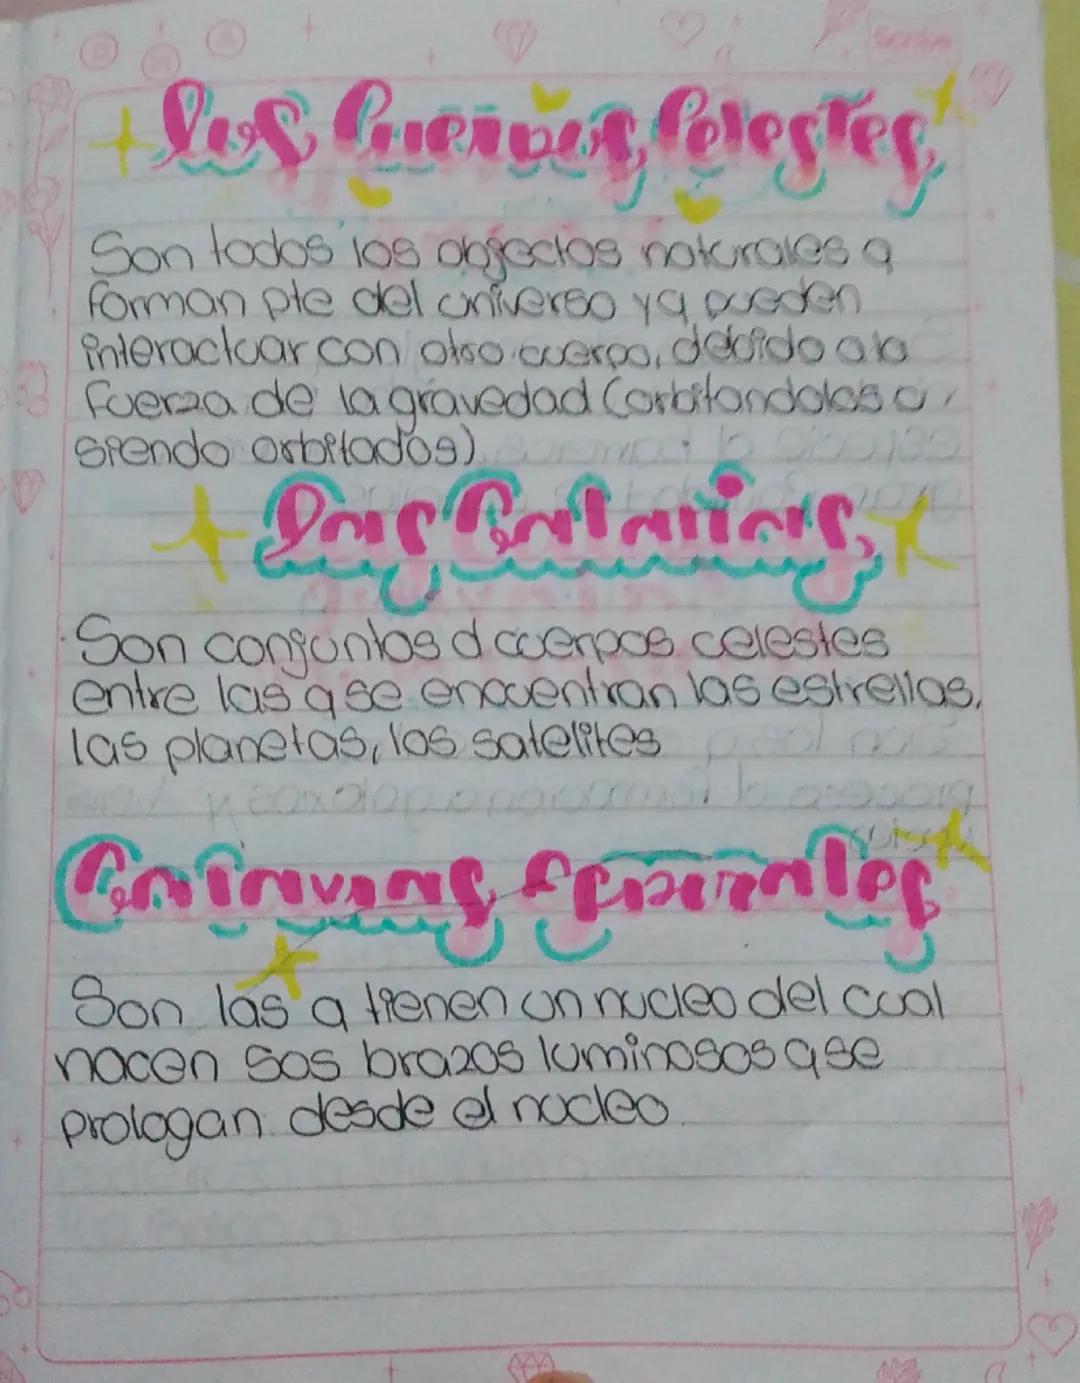 Los Cuerpos Celestes
Son todos los objectos naturales q
forman pte del universo ya pueden
interactuar con otro cuerpo, debido a la
fuerza de la gravedad (orbitandolos o
siendo orbitados)
Las Galaxias
Son conjuntos d cuerpos celestes
entre las q se encuentran las estrellas,
las planetas, los satelites
Galaxias Espirales
Son las q tienen un nucleo del cual
nacen sos brazos luminosos q se
prologan desde el nucleo
Scribe